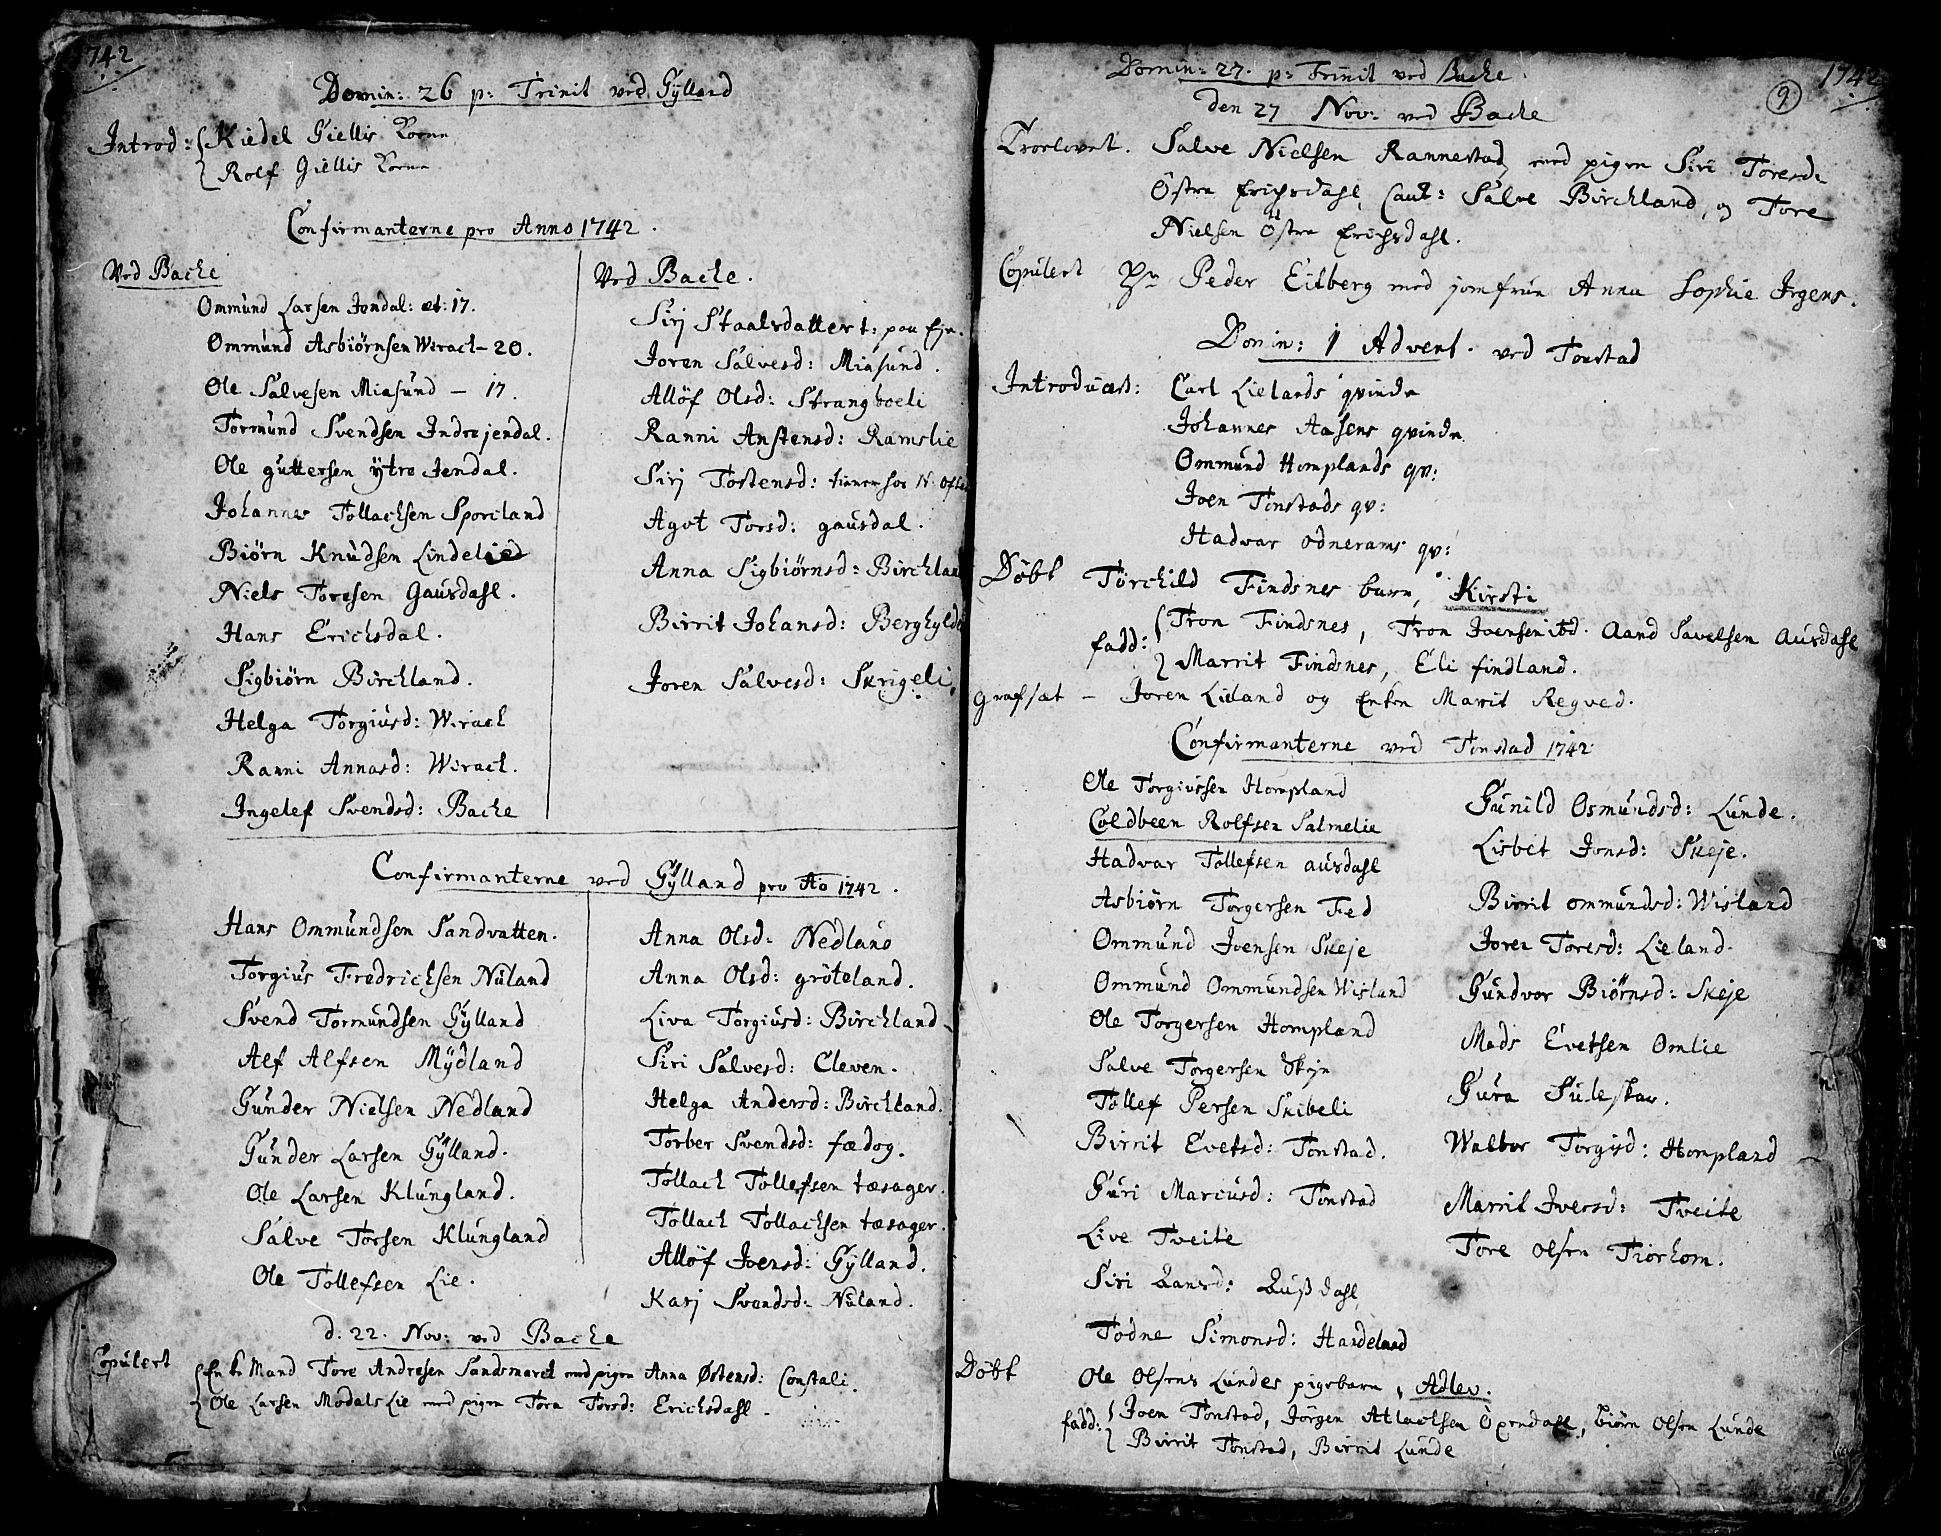 1742
Domin: 26 p: Trinit ved Gÿlland
Introd: Kiedel Giellis Kone
Rolf Giellis Kone
Confirmanterne pro Anno 1742.
Ved Bache
Ommund Larsen Jendal: æt: 17.
Ommund Asbiörnsen Wirach - 20.
Ole Salvesen Miasund - 17.
Tormund Svendsen Indrejendal.
Ole guttersen ÿtre Jendal.
Johannes Tollachsen Sporcland
Biörn Knudsen Lindelied
Niels Toresen Gausdahl.
Hans Erichsdal.
Sigbiörn Birchland.
Helga Torgiusd: Wirach
Ranni Annasd: Wirach.
Ingelef Svendsd: Bache
Ved Bache.
Sirj Staalsdatter
Joren Salvesd: Miasund.
Allöf Olsd: Strangboeli
Ranni Anstensd: Ramslie
Sirj Tostensd: tienner hos N:
Agot Torsd: gausdal.
Anna Sigbiörnsd: Birchland
Birrit Johansd: Berghyld
Joren Salvesd: Skrigeli.
Confirmanterne ved Gÿlland pro Ao 1742.
Hans Ommundsen Sandvatten.
Torgius Fredrichsen Nuland
Svend Tormundsen Gÿlland
Alf Alfsen Mÿdland
Gunder Nielsen Nedland
Gunder Larsen Gÿlland.
Ole Larsen Klungland.
Salve Torsen Klungland
Ole Tollefsen Lie.
Anna Olsd: Nedland
Anna Olsd: gröteland.
Liva Torgiusd: Birchland
Siri Salvesd: Cleven.
Helga Andersd: Birchland.
Torber Svendsd: fædog.
Tollach Tollefsen tæsager.
Tollach Tollachsen tæsager.
Allöf Joensd: Gÿlland.
Karj Svendsd: Nuland.
d. 22. Nov: ved Bache
Copulert Enke Mand Tore Andresen Sandsmarck med pigen Anna Østensd: Constali.
Ole Larsen Modals Lie med pigen Tora Torsd: Erichsdahl.
9
1742
Domin: 27. p: Trinit ved Bache.
den 27 Nov: ved Bache
Troelovet. Salve Nielsen Rannestad, med pigen Siri Toresd:
Östre Erichsdahl, Caut: Salve Birchland, og Tore
Nielsen Östre Erichsdahl.
Copulert Hr Peder Eitberg med jomfrue Anna Sophie Irgens.
Domin: 1 Advent. ved Tonstad
Introducert: Carl Lielands qvinde
Johannes Aasens qvinde
Ommund Homplands qv:
Joen Tonstads qv:
Hadvar odnerams qv:
Döbt Torchild Findsnes barn, Kirsti
fadd: Tron Findsnes, Tron Joensen ibd. Aand Savelsen Ausdahl
Marrit Findsnes, Eli findland.
Grafsat - Joren Lieland og Enken Marit Regved.
Confirmanterne ved Tonstad 1742
Ole Torgiussen Hompland
Coldbeen Rolfsen Salmelie
Hadvar Tollefsen ausdahl
Asbiörn Torgersen Fed
Ommund Joensen Skeje
Ommund Ommundsen Wisland
Ole Torgersen Hompland
Salve Torgersen
Tollef Persen Skibeli
Birrit Evetsd: Tonstad.
Guri Marcusd: Tonstad
Live Tveite
Siri
Todne Simonsd: Haudeland
Gunild Osmundsd: Lunde.
Lisbet Jonsd: Skeje.
Birrit ommundsd: Wisland
Joren Toresd: Lieland.
Gundvor Biörnsd: Skeje
Mads Evetsen Omlie
Gura Suleskar.
Walbor Torgisd: Hompland
Marrit Iversd: Tveite
Tore Olsen Fiorhom.
Döbt Ole Olsens Lundes pigebarn, Adlev.
fadd: Joen Tonstad, Jörgen Atlachsen Öxendahl, biörn Olsen Lunde
Birrit Tonstad, Birrit Lunde